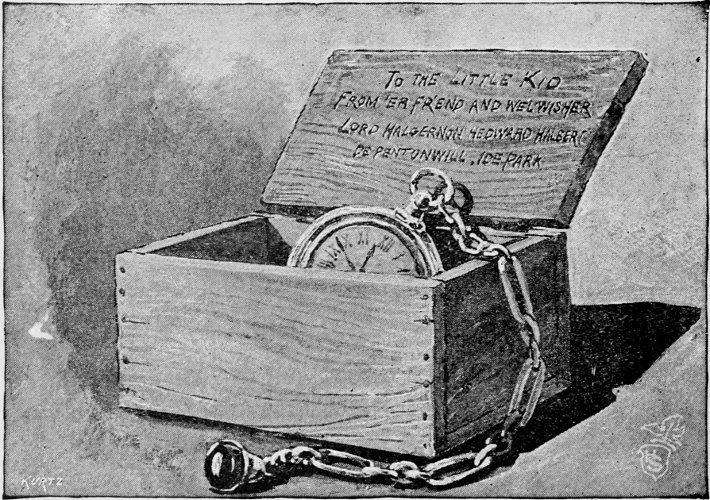 TO THE LITTLE KID
FROM 'ER FR'END AND WELWISHER
LORD HALGERNON HEDWARD HALBERT
DE PENTONWILL, IDE PARK
KURTZ